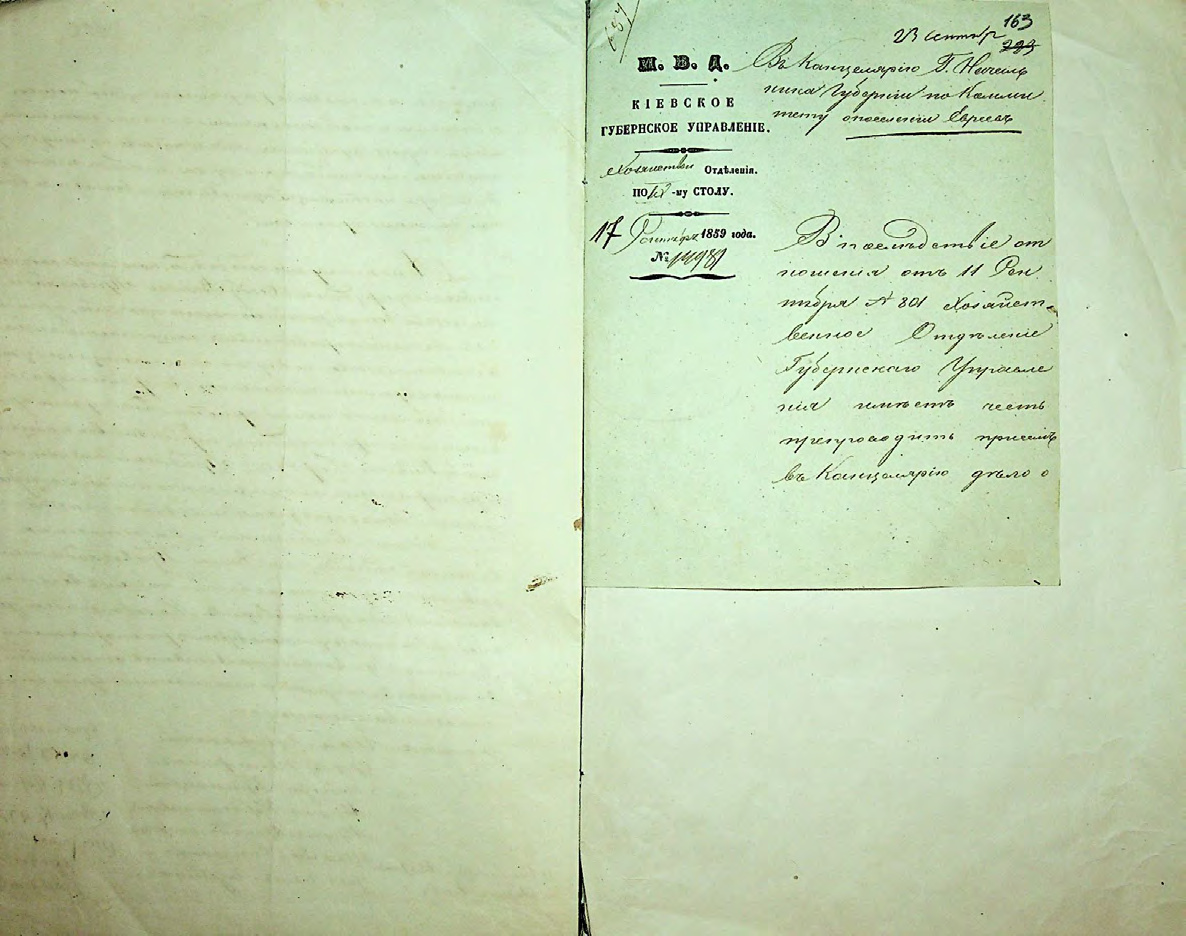 687
163
23 Сентябр
М. В. Д.
КІЕВСКОЕ
ГУБЕРНСКОЕ УПРАВЛЕНІЕ.
Отдѣленія.
ПО -му СТОЛУ.
17 Сентября 1859 года.
№
Въ Канцелярію Г. Началь
ника Губерніи по Комми
тету о поселеніи Евреевъ
Въ послѣдствіе от
ношенія отъ 11 Сен
тября № 801 Хозяйст-
венное Отдѣленіе
Губернскаго Управле
нія имѣетъ честь
препроводить при семъ
въ Канцелярію дѣло о